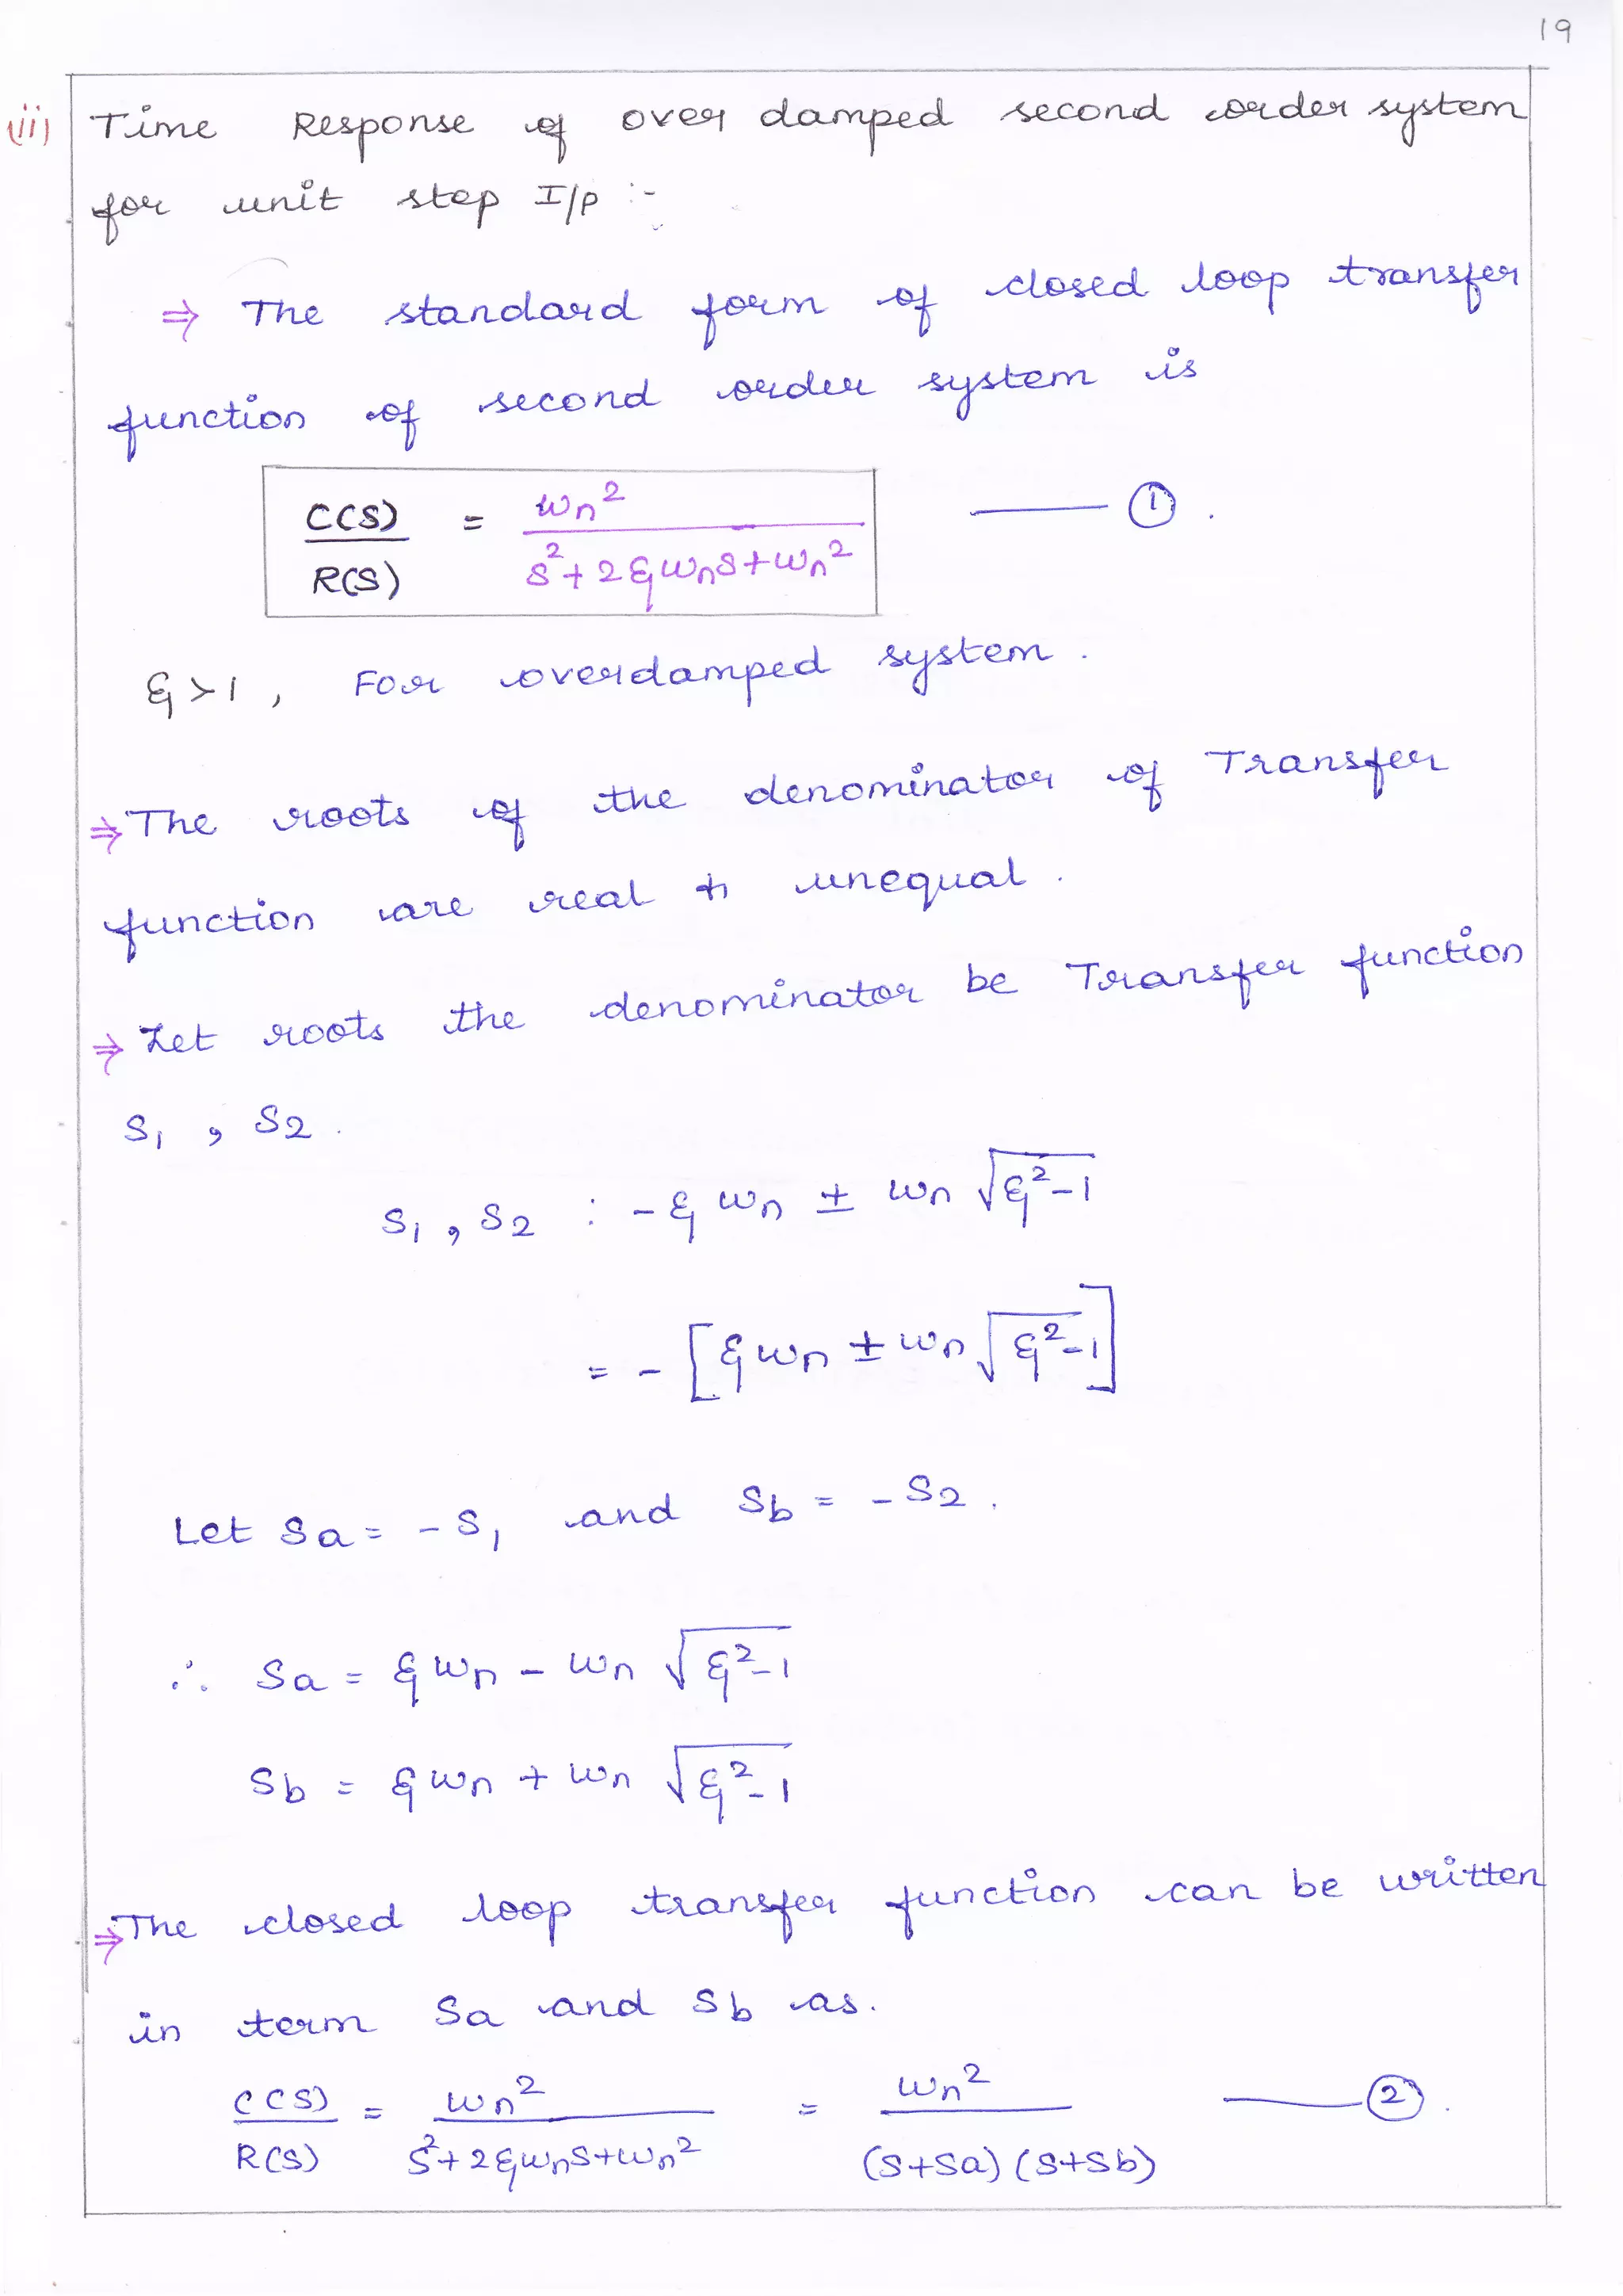 19
(ii) Time Response of over damped second order system
for unit step I/P :-
⇒ The standard form of closed loop transfer
function of second order system is
C(S)/R(S) = ωn²/(S²+2ξωnS+ωn²) —— ①.
ξ>1, For overdamped system.
⇒ The roots of the denominator of Transfer
function are real & unequal.
⇒ Let roots the denominator be Transfer function
S1, S2.
S1, S2 : -ξωn ± ωn √(ξ²-1)
= - [ξωn ± ωn √(ξ²-1)]
Let Sa = -S1 and Sb = -S2.
∴ Sa = ξωn - ωn √(ξ²-1)
Sb = ξωn + ωn √(ξ²-1)
⇒ The closed loop transfer function can be written
in term Sa and Sb as.
C(S)/R(S) = ωn²/(S²+2ξωnS+ωn²) = ωn²/((S+Sa)(S+Sb)) —— ②.